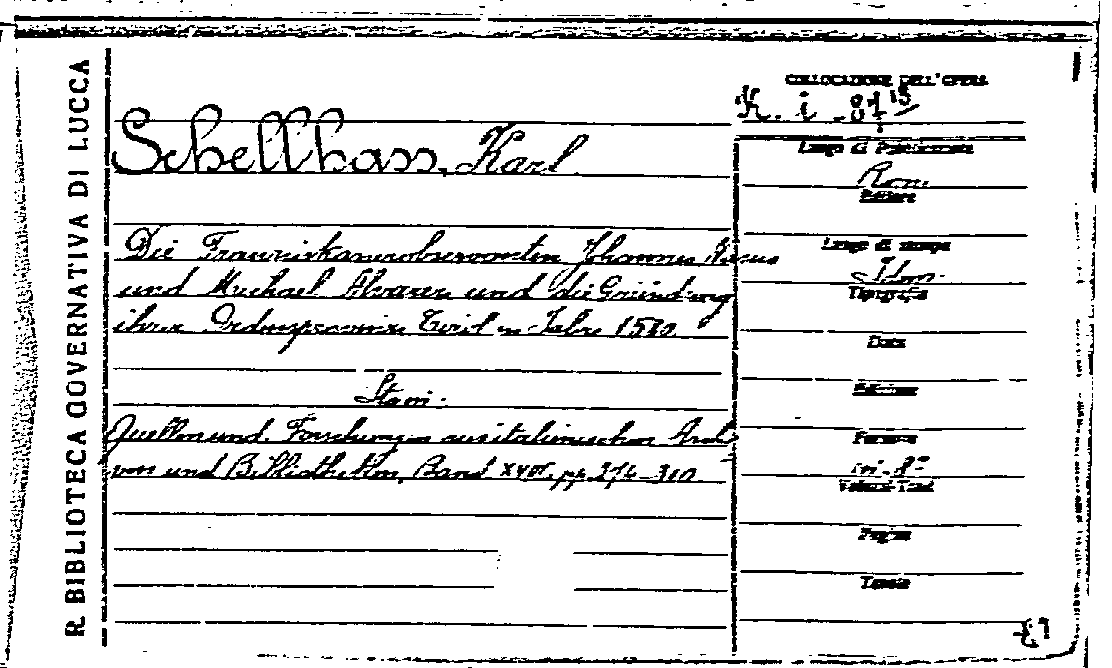 R. BIBLIOTECA GOVERNATIVA DI LUCCA
COLLOCAZIONE DELL'OPERA
Schellhass, Karl
Die Franziskanerobservanten Johannes
und Michael Alvarez und die Gründung
ihrer Ordensprovinz Tirol im Jahre 1580
Stan.
Quellen und Forschungen aus italienischen Archi
ven und Bibliotheken, Band XVII, pp.
Luogo di Pubblicazione
Rom.
Editore
Luogo di stampa
Idem.
Tipografia
Data
Edizione
Formato
in-8°
Volumi-Tomi
Pagine
Tavole